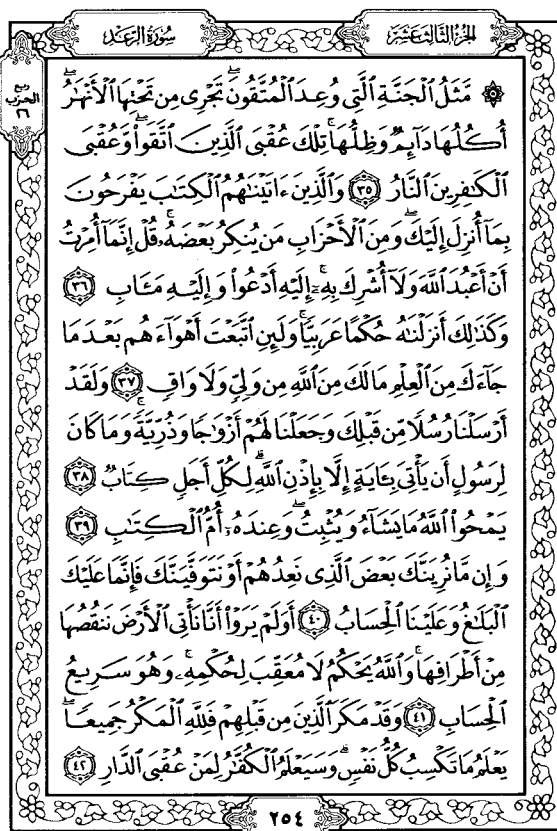 الجزء الثالث عشر
سورة الرعد
ربع
الحزب
٢٦
۞ مَّثَلُ ٱلْجَنَّةِ ٱلَّتِى وُعِدَ ٱلْمُتَّقُونَ ۖ تَجْرِى مِن تَحْتِهَا ٱلْأَنْهَٰرُ ۖ
أُكُلُهَا دَآئِمٌ وَظِلُّهَا ۚ تِلْكَ عُقْبَى ٱلَّذِينَ ٱتَّقَوا۟ ۖ وَّعُقْبَى
ٱلْكَٰفِرِينَ ٱلنَّارُ ٣٥ وَٱلَّذِينَ ءَاتَيْنَٰهُمُ ٱلْكِتَٰبَ يَفْرَحُونَ
بِمَآ أُنزِلَ إِلَيْكَ ۖ وَمِنَ ٱلْأَحْزَابِ مَن يُنكِرُ بَعْضَهُۥ ۚ قُلْ إِنَّمَآ أُمِرْتُ
أَنْ أَعْبُدَ ٱللَّهَ وَلَآ أُشْرِكَ بِهِۦٓ ۚ إِلَيْهِ أَدْعُوا۟ وَإِلَيْهِ مَـَٔابِ ٣٦
وَكَذَٰلِكَ أَنزَلْنَٰهُ حُكْمًا عَرَبِيًّا ۚ وَلَئِنِ ٱتَّبَعْتَ أَهْوَآءَهُم بَعْدَمَا
جَآءَكَ مِنَ ٱلْعِلْمِ مَا لَكَ مِنَ ٱللَّهِ مِن وَلِىٍّ وَلَا وَاقٍ ٣٧ وَلَقَدْ
أَرْسَلْنَا رُسُلًا مِّن قَبْلِكَ وَجَعَلْنَا لَهُمْ أَزْوَٰجًا وَذُرِّيَّةً ۚ وَمَا كَانَ
لِرَسُولٍ أَن يَأْتِىَ بِـَٔايَةٍ إِلَّا بِإِذْنِ ٱللَّهِ ۗ لِكُلِّ أَجَلٍ كِتَابٌ ٣٨
يَمْحُوا۟ ٱللَّهُ مَا يَشَآءُ وَيُثْبِتُ ۖ وَعِندَهُۥٓ أُمُّ ٱلْكِتَٰبِ ٣٩
وَإِن مَّا نُرِيَنَّكَ بَعْضَ ٱلَّذِى نَعِدُهُمْ أَوْ نَتَوَفَّيَنَّكَ فَإِنَّمَا عَلَيْكَ
ٱلْبَلَٰغُ وَعَلَيْنَا ٱلْحِسَابُ ٤٠ أَوَلَمْ يَرَوْا۟ أَنَّا نَأْتِى ٱلْأَرْضَ نَنقُصُهَا
مِنْ أَطْرَافِهَا ۚ وَٱللَّهُ يَحْكُمُ لَا مُعَقِّبَ لِحُكْمِهِۦ ۚ وَهُوَ سَرِيعُ
ٱلْحِسَابِ ٤١ وَقَدْ مَكَرَ ٱلَّذِينَ مِن قَبْلِهِمْ فَلِلَّهِ ٱلْمَكْرُ جَمِيعًا ۖ
يَعْلَمُ مَا تَكْسِبُ كُلُّ نَفْسٍ ۗ وَسَيَعْلَمُ ٱلْكُفَّٰرُ لِمَنْ عُقْبَى ٱلدَّارِ ٤٢
٢٥٤